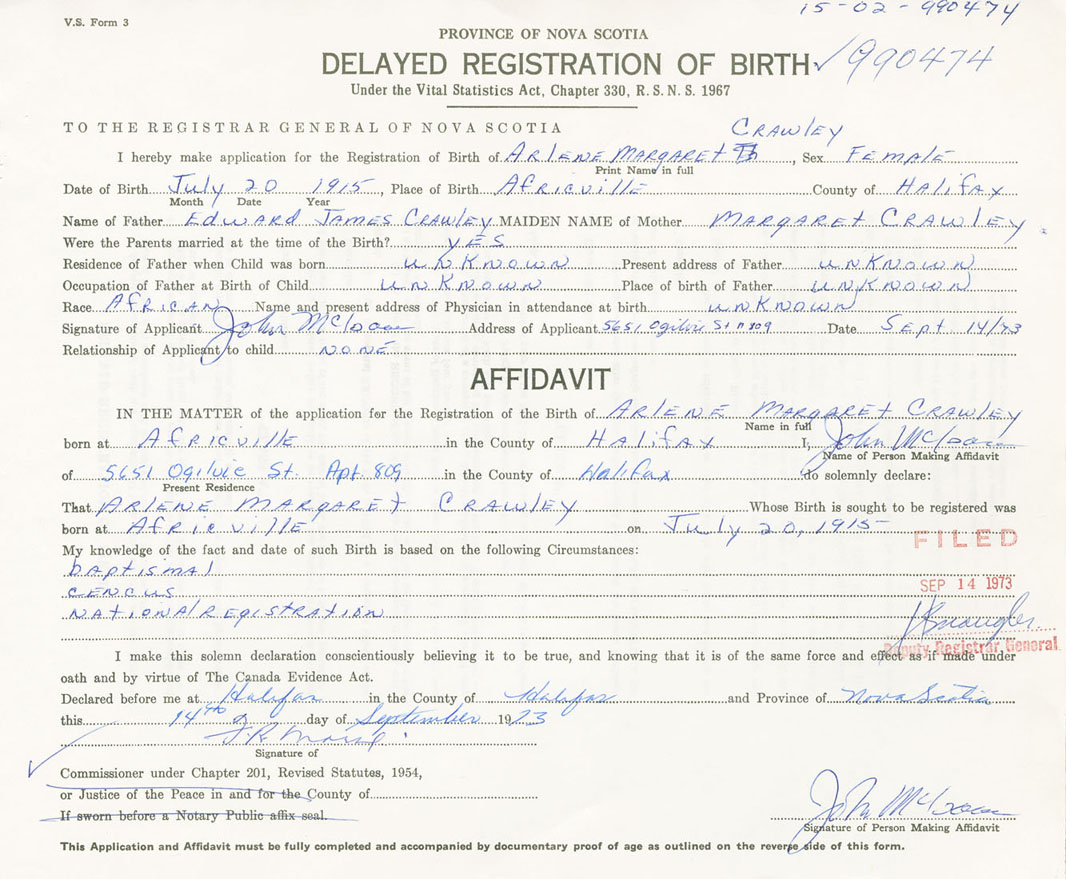 V.S. Form 3
15-02-990474
PROVINCE OF NOVA SCOTIA
DELAYED REGISTRATION OF BIRTH
√990474
Under the Vital Statistics Act, Chapter 330, R.S.N.S. 1967
TO THE REGISTRAR GENERAL OF NOVA SCOTIA
CRAWLEY
I hereby make application for the Registration of Birth of ARLENE MARGARET, Sex FEMALE
Print Name in full
Date of Birth July 20 1915, Place of Birth Africville County of Halifax
Month Date Year
Name of Father EDWARD JAMES CRAWLEY MAIDEN NAME of Mother MARGARET CRAWLEY
Were the Parents married at the time of the Birth? YES
Residence of Father when Child was born UNKNOWN Present address of Father UNKNOWN
Occupation of Father at Birth of Child UNKNOWN Place of birth of Father UNKNOWN
Race AFRICAN Name and present address of Physician in attendance at birth UNKNOWN
Signature of Applicant John Address of Applicant 5651 Ogilvie St # 809 Date Sept 14/73
Relationship of Applicant to child NONE
AFFIDAVIT
IN THE MATTER of the application for the Registration of the Birth of ARLENE MARGARET CRAWLEY
Name in full
born at Africville in the County of Halifax I, John
Name of Person Making Affidavit
of 5651 Ogilvie St. Apt. 809 in the County of Halifax do solemnly declare:
Present Residence
That ARLENE MARGARET CRAWLEY Whose Birth is sought to be registered was
born at Africville on July 20, 1915
FILED
My knowledge of the fact and date of such Birth is based on the following Circumstances:
baptismal
SEP 14 1973
CENCUS
NATIONAL REGISTRATION
Deputy Registrar General
I make this solemn declaration conscientiously believing it to be true, and knowing that it is of the same force and effect as if made under
oath and by virtue of The Canada Evidence Act.
Declared before me at Halifax in the County of Halifax and Province of Nova Scotia
this 14th day of September 1973
Signature of
Commissioner under Chapter 201, Revised Statutes, 1954,
or Justice of the Peace in and for the County of
If sworn before a Notary Public affix seal.
John
Signature of Person Making Affidavit
This Application and Affidavit must be fully completed and accompanied by documentary proof of age as outlined on the reverse side of this form.